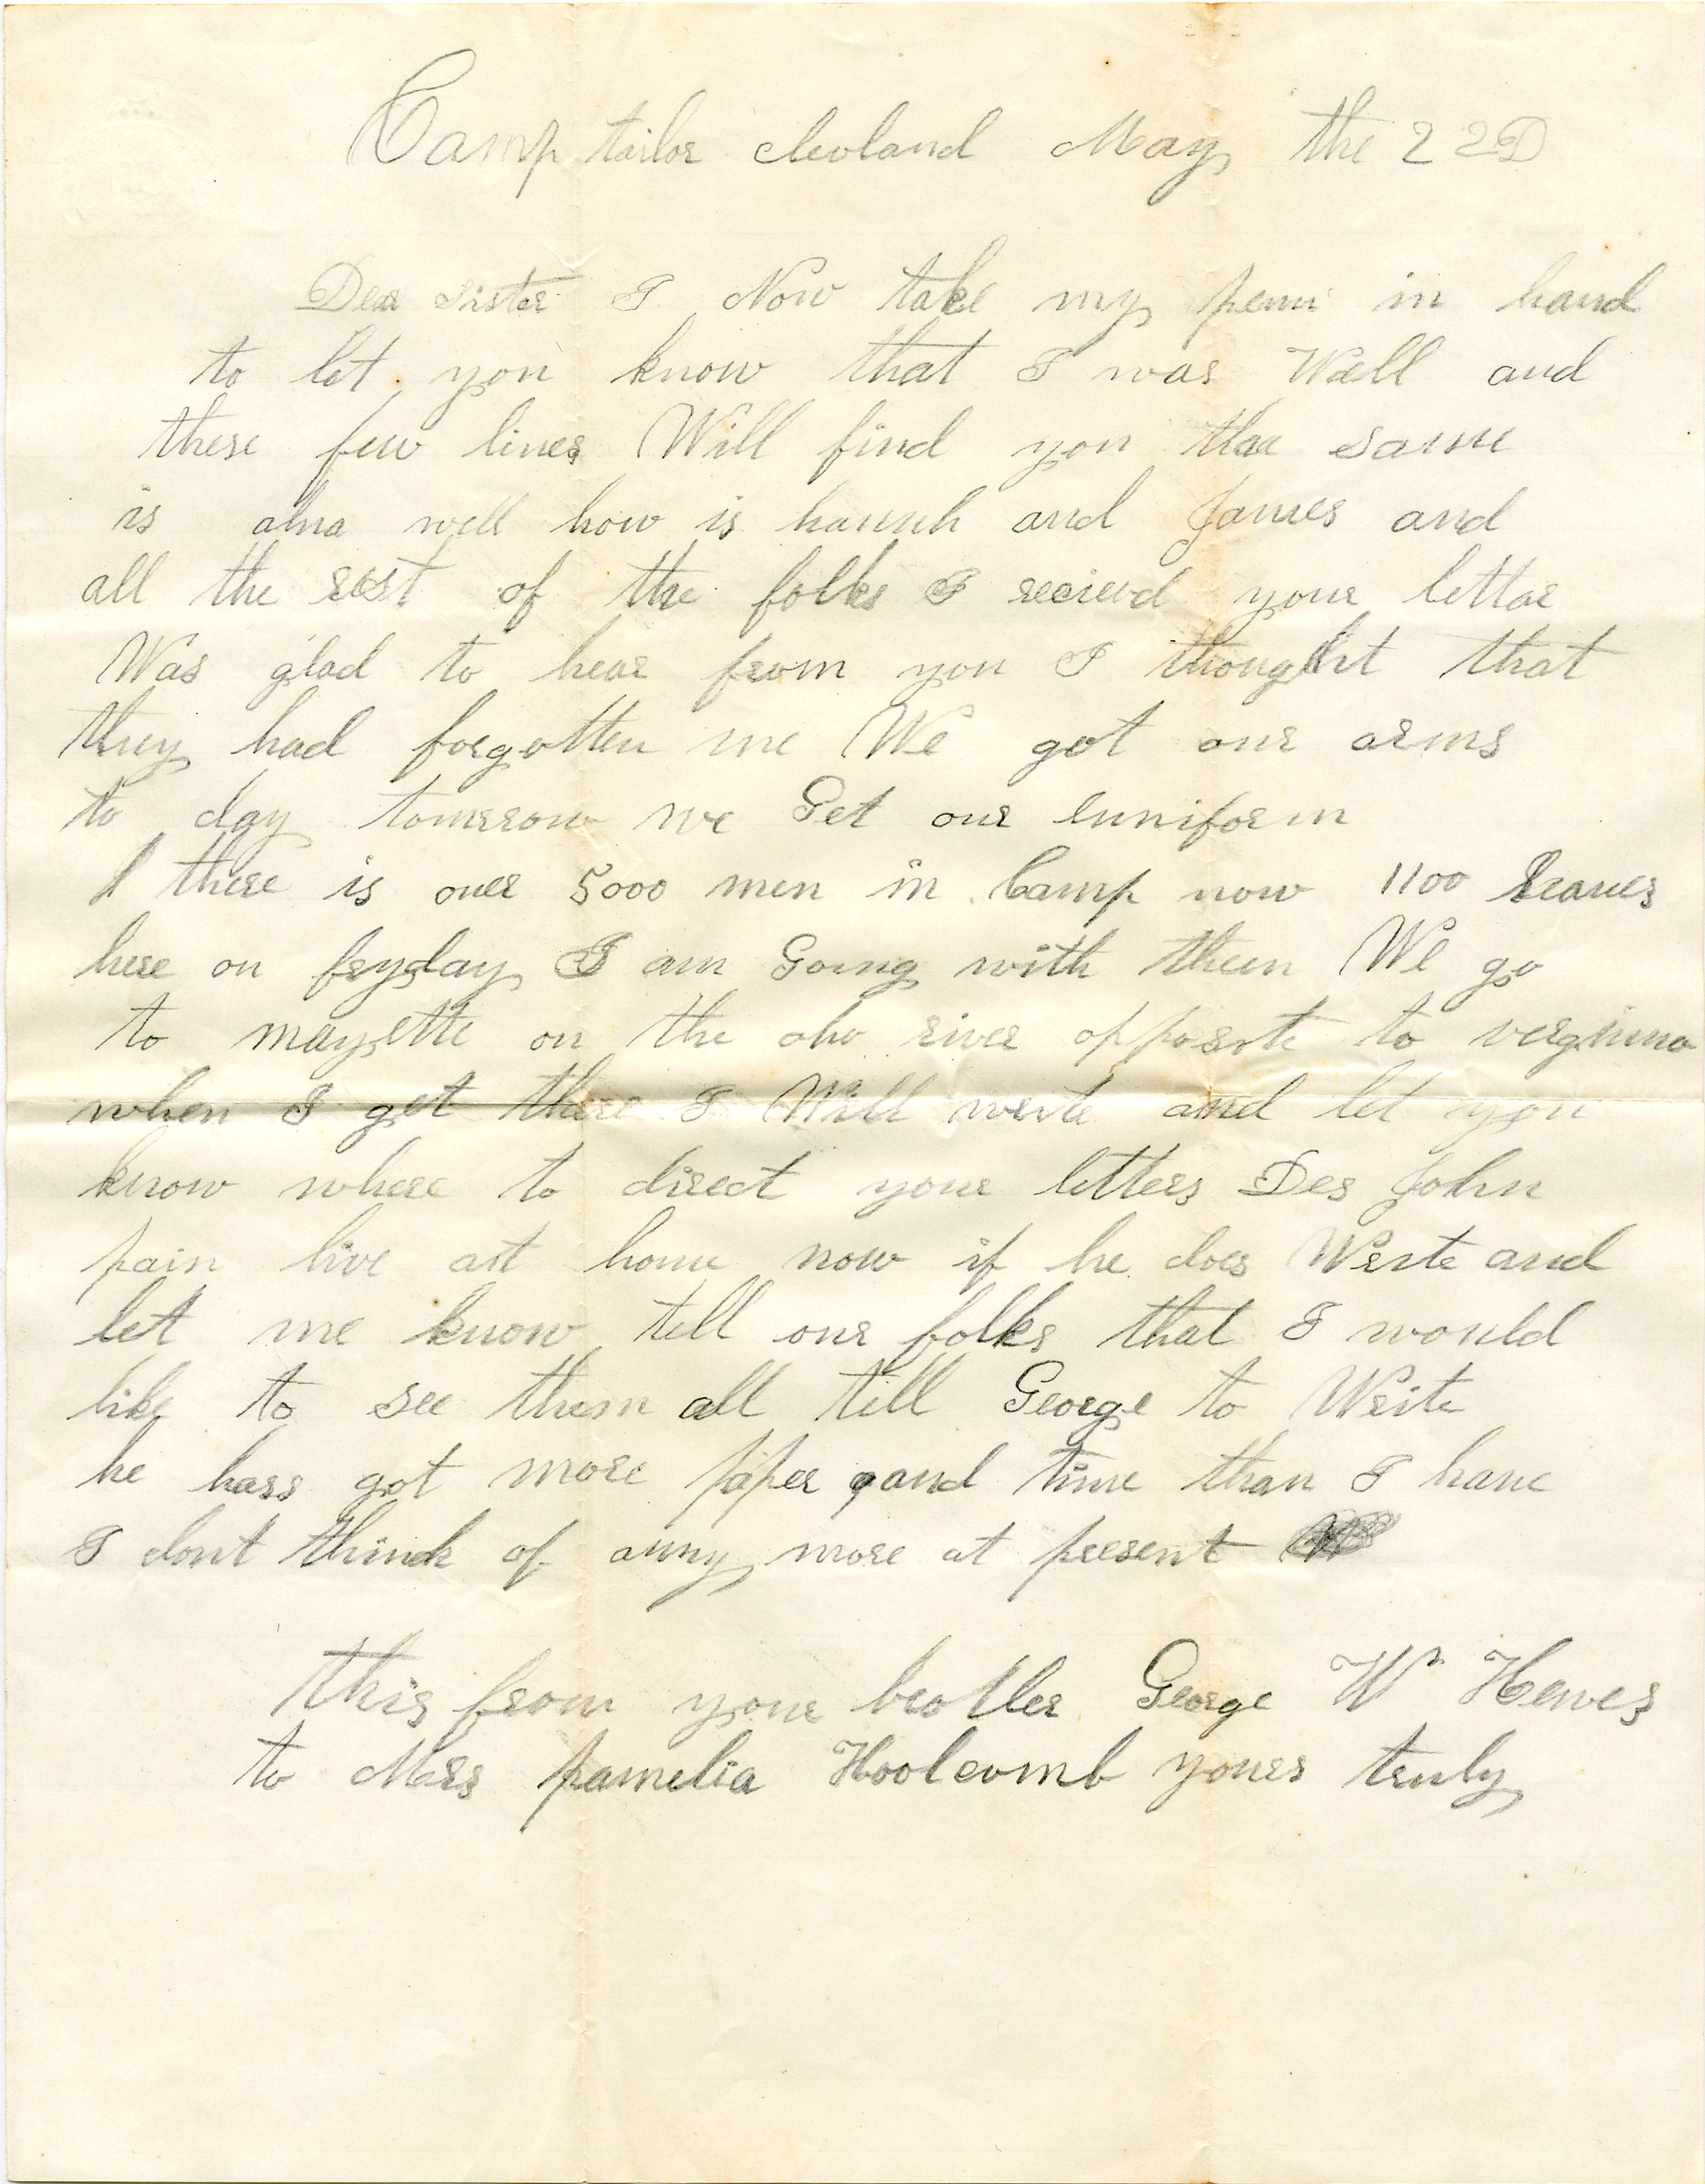 Camp tailor clevland May the 22D
Dear sister I Now take my penn in hand
to let you know that I was Well and
these few lines Will find you thae same
is alma well how is hannh and James and
all the rest of the folks I recievd your lettar
Was glad to hear from you I thought that
they had forgotten me We got our arms
to day tomrrow we Get our unniform
there is over 5000 men in Camp now 1100 leaves
here on fryday I am Going with them We go
to mayette on the oho river opposite to verginna
when I get there I Will write and let you
know where to direct your letters Des John
pain live att home now if he does Write and
let me know tell our folks that I would
like to see them all tell George to Write
he hass got more paper and time than I have
I dont think of anny more at present
This from your brother George W Hewes
to Mrs pamelia Hoolcomb yours truly